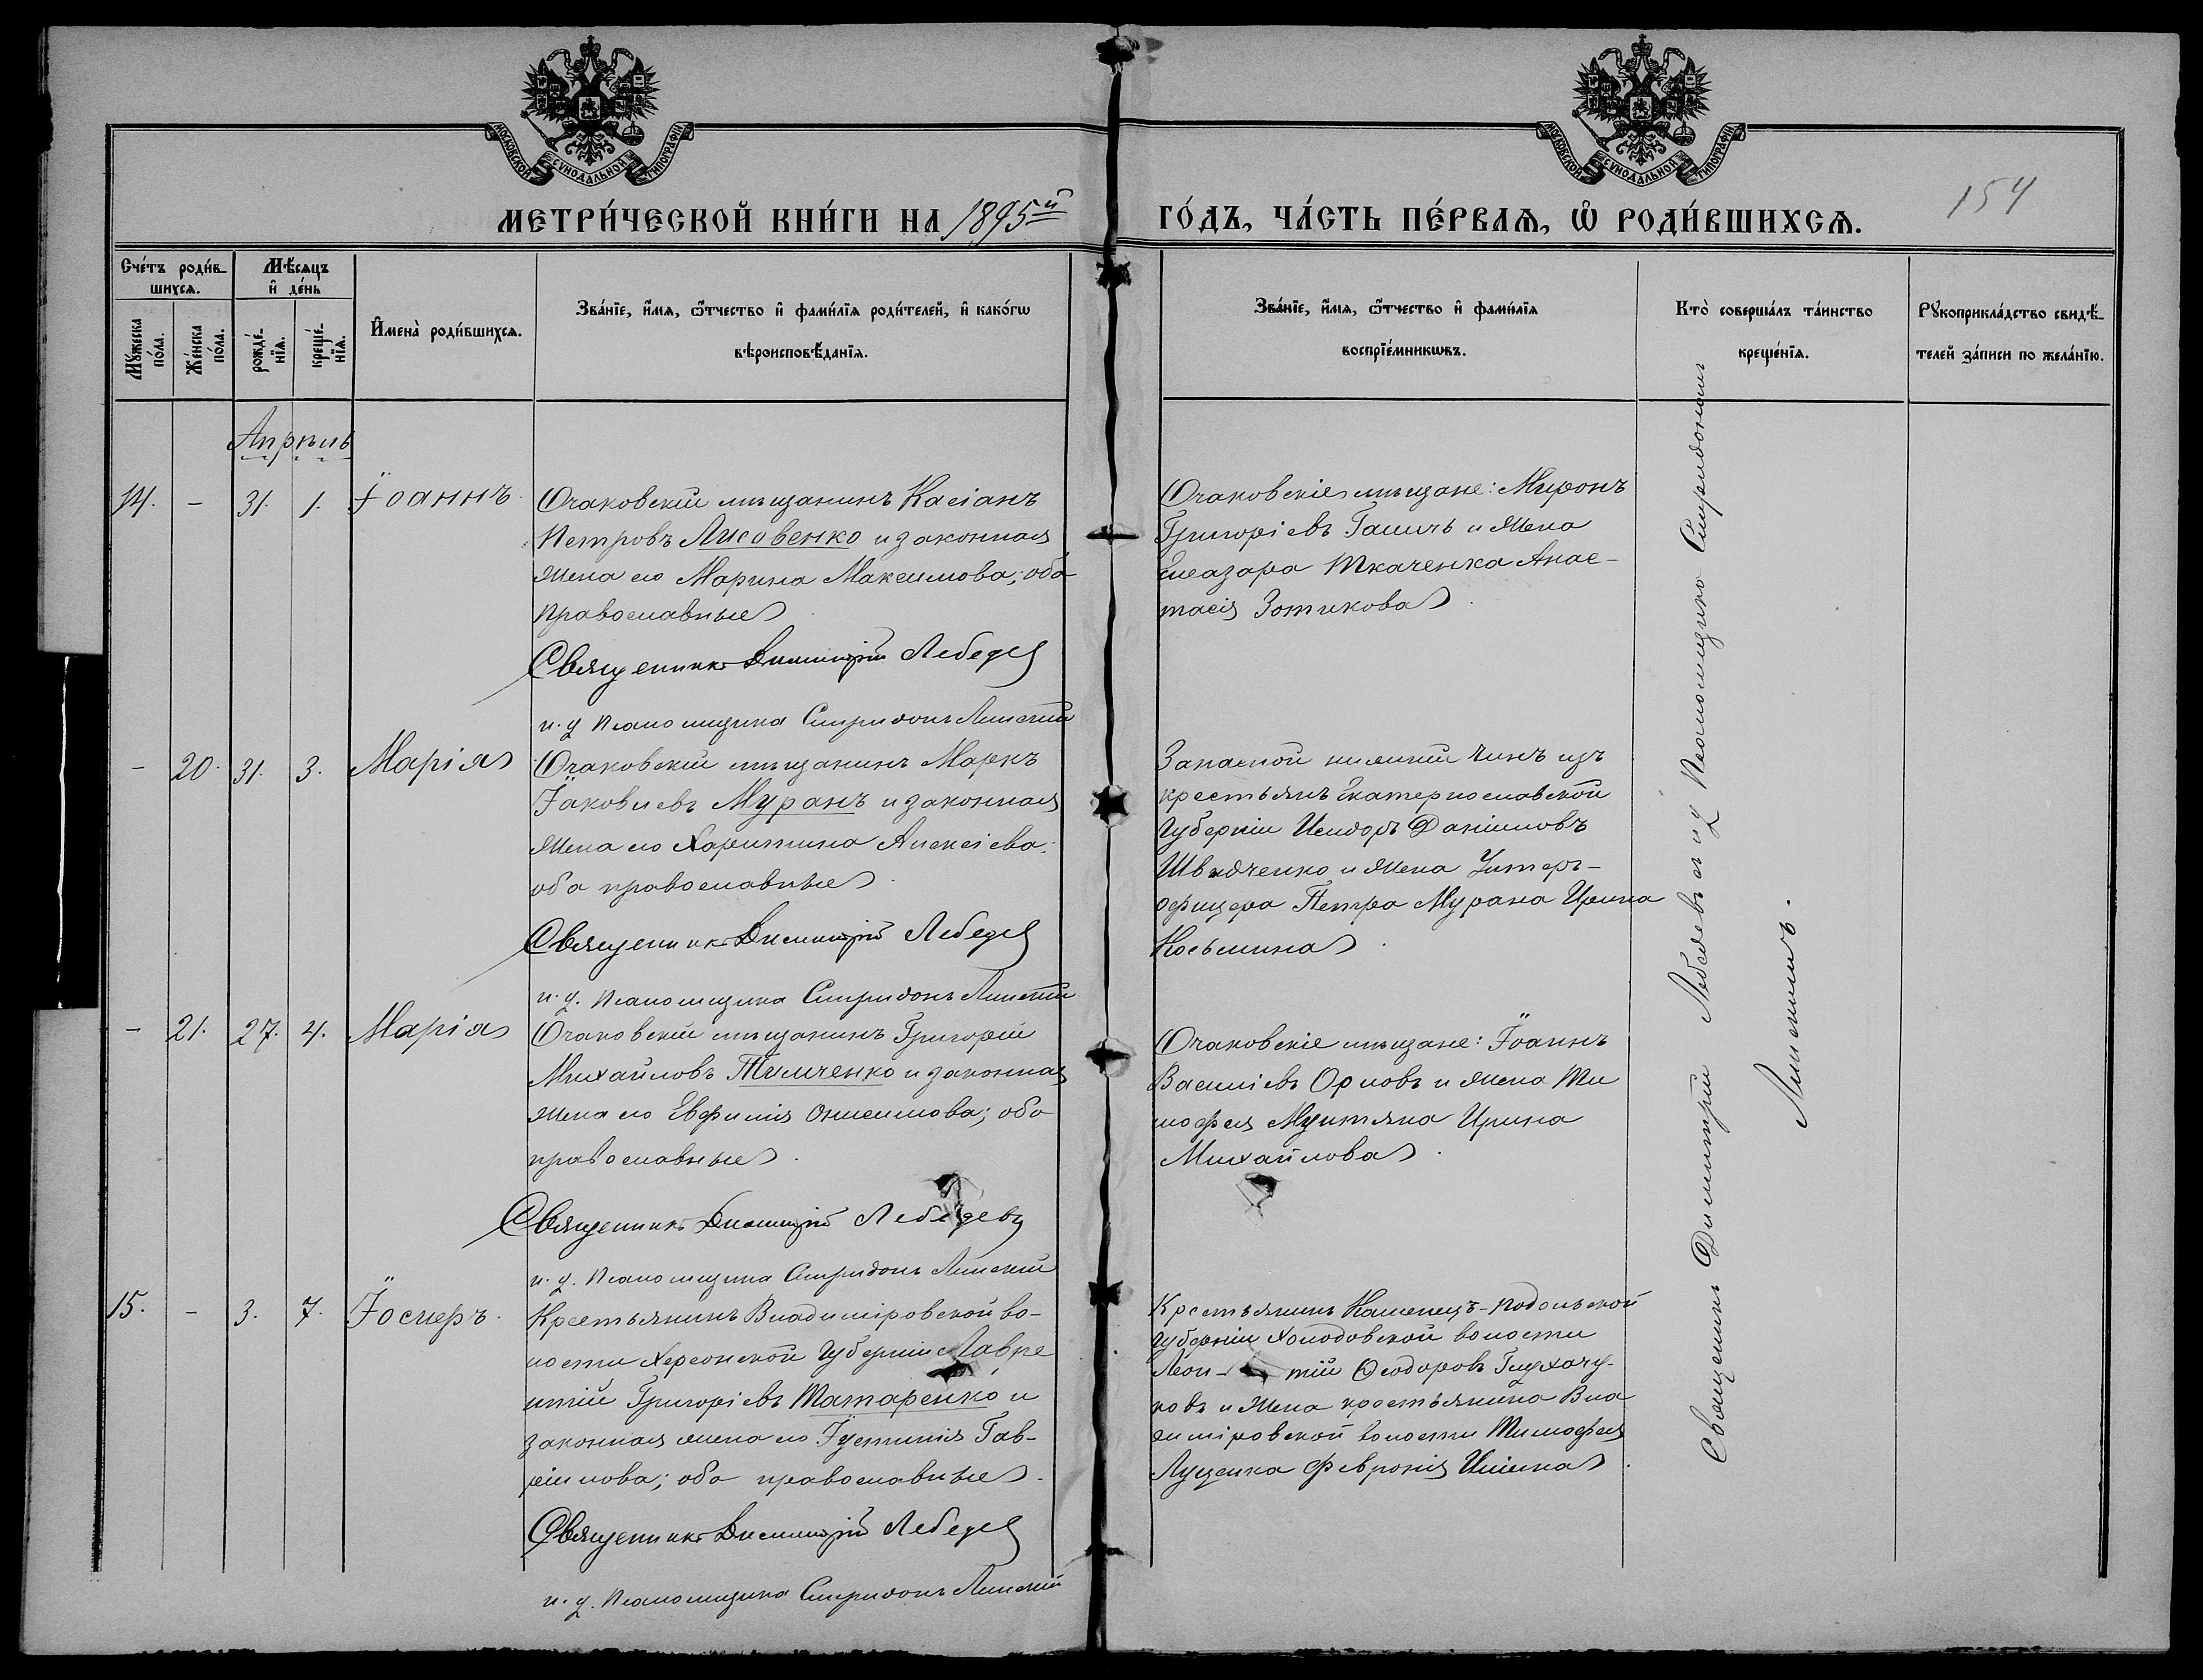 МОСКОВСКОЙ СУНОДАЛЬНОЙ ТИПОГРАФІИ
МОСКОВСКОЙ СУНОДАЛЬНОЙ ТИПОГРАФІИ
МЕТРИ́ЧЕСКОЙ КНИ́ГИ НА 1895й
ГО́ДЪ, ЧА́СТЬ ПЕ́РВАѦ, Ѽ РОДИ́ВШИХСѦ.
154
Сче́тъ роди́в-
шихсѧ.
Мѣ́сяцъ
и҆ де́нь
Мꙋ́жеска
по́ла.
Же́нска
по́ла.
рожде́-
нїѧ.
креще́-
нїѧ.
И҆мена̀ роди́вшихсѧ.
Зва́нїе, и҆́мѧ, ѻ҆́тчество и҆ фами́лїѧ роди́телей, и҆ како́гѡ
вѣроисповѣ́данїѧ.
Зва́нїе, и҆́мѧ, ѻ҆́тчество и҆ фами́лїѧ
воспрїе́мникѡвъ.
Кто̀ соверша́лъ та́инство
креще́нїѧ.
Рꙋкоприкла́дство свидѣ́-
телей за́писи по жела́нїю.
Апрѣль
14. - 31. 1. Іоаннъ.
Очаковскій мѣщанинъ Касіанъ
Петровъ Лисовенко и законная
жена его Марина Максимова; оба
православные.
Священникъ Димитрій Лебедев
и. д. псаломщика Спиридонъ Липскій
Очаковскіе мѣщане: Миронъ
Григоріевъ Галичъ и жена
Елеазара Ткаченка Анас-
тасія Зотикова.
- 20. 31. 3. Марія
Очаковскій мѣщанинъ Маркъ
Іаковлевъ Муранъ и законная
жена его Харитина Алексіева:
оба православные.
Священникъ Димитрій Лебедев
и. д. псаломщика Спиридонъ Липскій
Запасной нижній чинъ изъ
крестьянъ Екатеринославской
губерніи Исидоръ Даніиловъ
Швядченко и жена Унтеръ-
офицера Петра Мурана Ирина
Косьмина.
- 21. 27. 4. Марія
Очаковскій мѣщанинъ Григорій
Михайловъ Тимченко и законная
жена его Евфимія Онисимова; оба
православные.
Священникъ Димитрій Лебедевъ
и. д. псаломщика Спиридонъ Липскій
Очаковскіе мѣщане: Іоаннъ
Василіевъ Орловъ и жена Ти
мофея Мунтяна Ирина
Михайлова.
15. - 3. 7. Іосифъ.
Крестьянинъ Владиміровской во-
лости Херсонской губерніи Лавре
нтій Григоріевъ Татаренко и
законная жена его Іустинія Гав-
ріилова; оба православные.
Священникъ Димитрій Лебедев
и. д. псаломщика Спиридонъ Липскій
Крестьянинъ Каменецъ-Подольской
губерніи Холодовской волости
Леон- тій Ѳеодоровъ Глухачу-
ковъ и жена крестьянина Вла
диміровской волости Тимофея
Луценка Февронія Ильина.
Священникъ Димитрій Лебедевъ съ и. д. псаломщика Спиридономъ
Липскимъ.